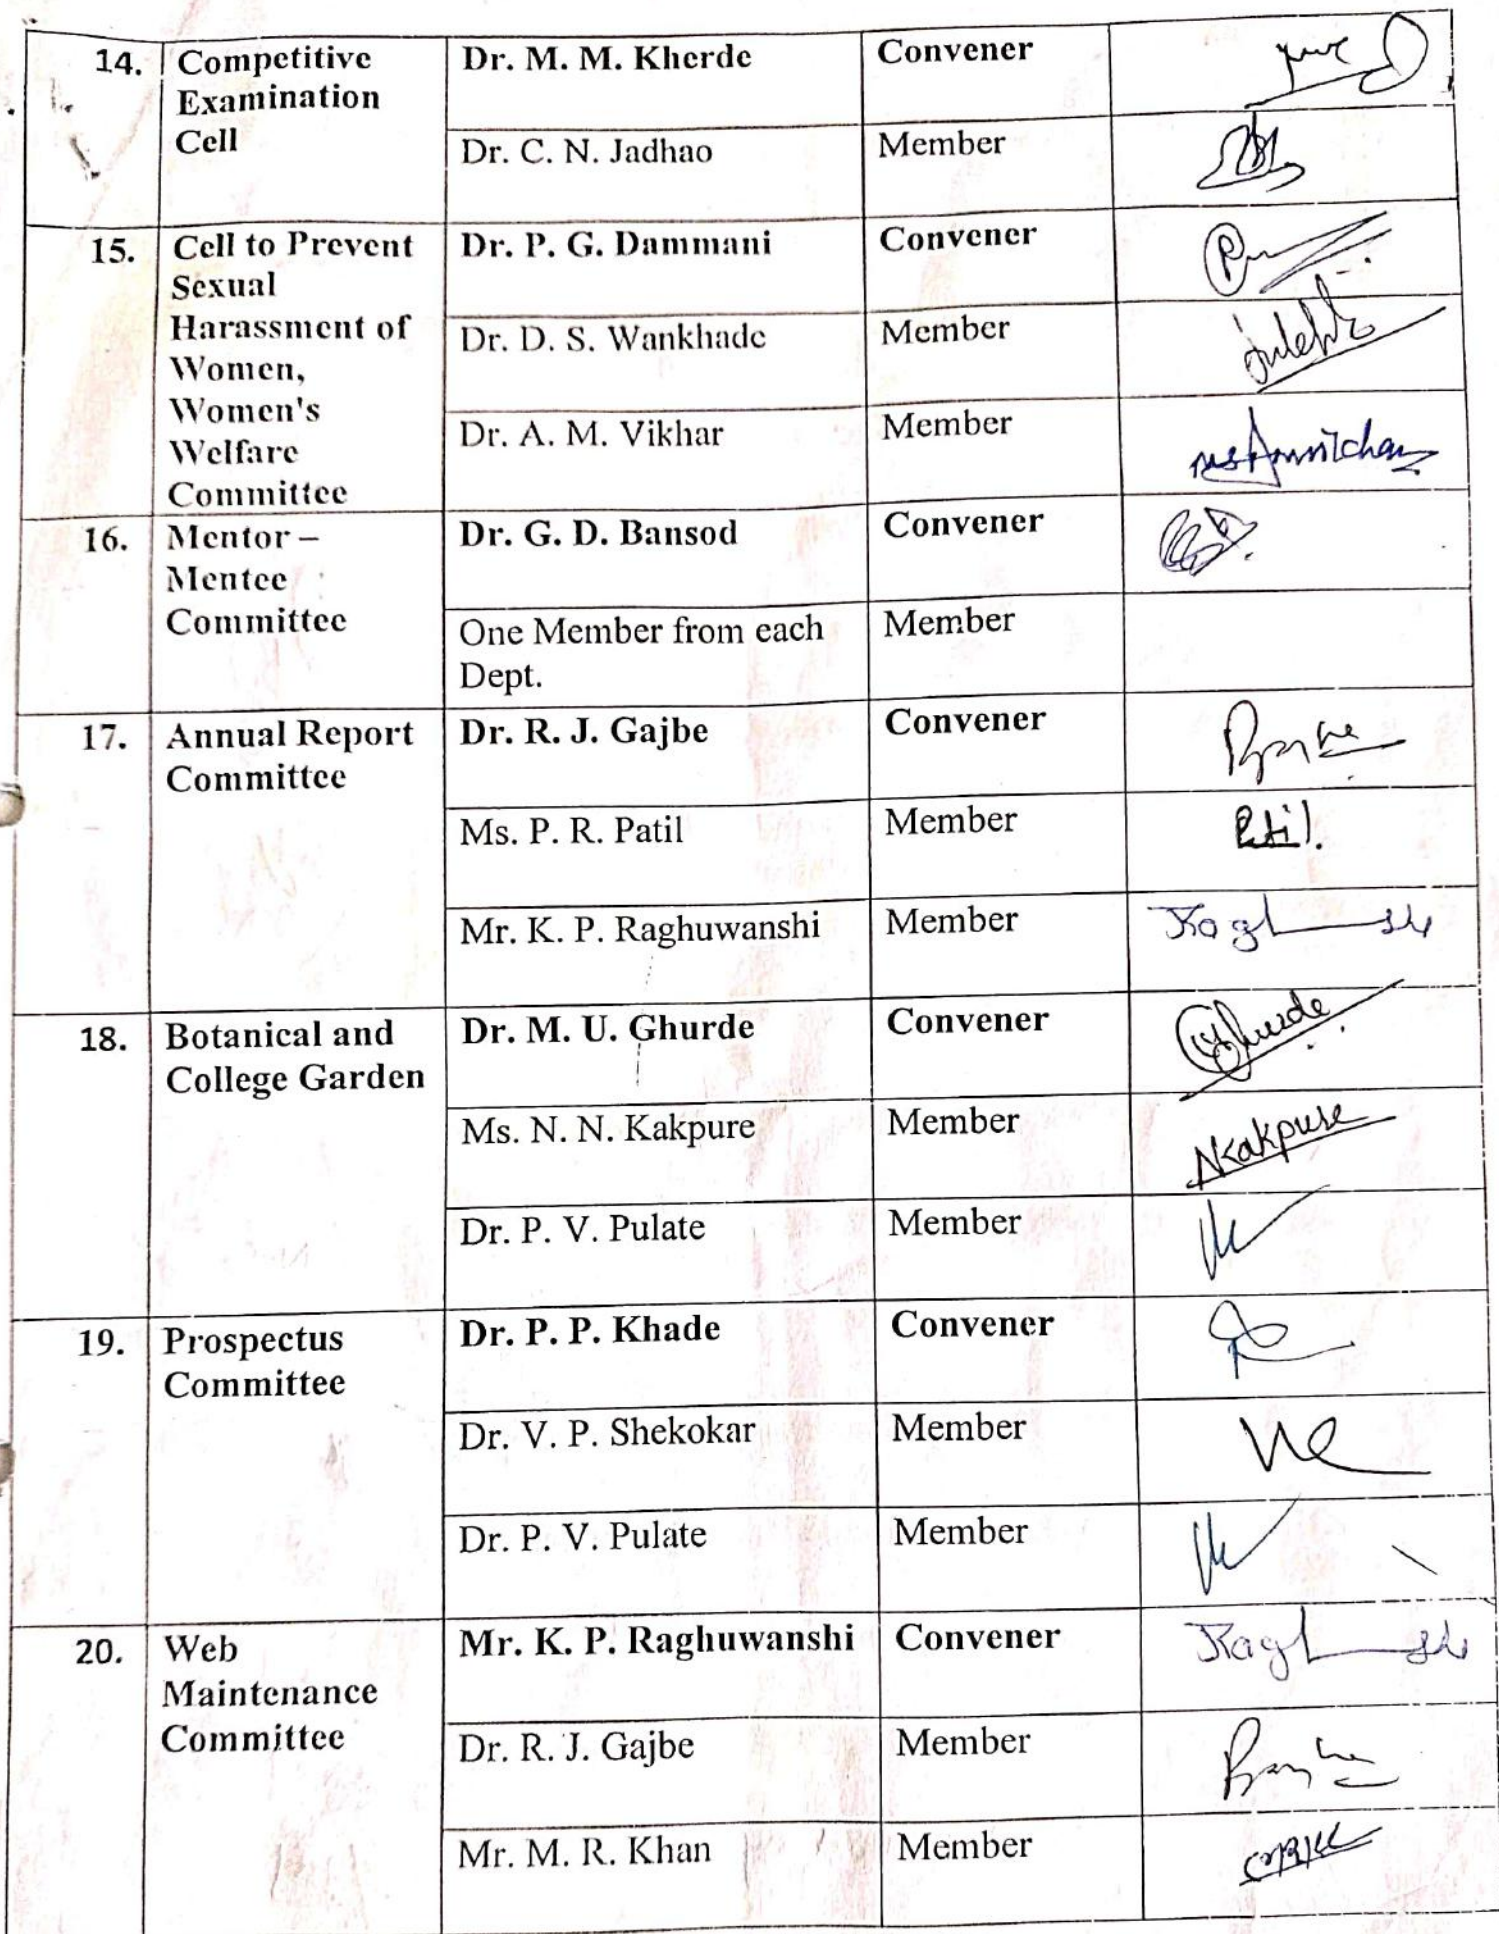 14. Competitive Examination Cell Dr. M. M. Kherde Convener
Dr. C. N. Jadhao Member
15. Cell to Prevent Sexual Harassment of Women, Women's Welfare Committee Dr. P. G. Dammani Convener
Dr. D. S. Wankhade Member
Dr. A. M. Vikhar Member
16. Mentor – Mentee Committee Dr. G. D. Bansod Convener
One Member from each Dept. Member
17. Annual Report Committee Dr. R. J. Gajbe Convener
Ms. P. R. Patil Member
Mr. K. P. Raghuwanshi Member
18. Botanical and College Garden Dr. M. U. Ghurde Convener
Ghurde
Ms. N. N. Kakpure Member
NKakpure
Dr. P. V. Pulate Member
19. Prospectus Committee Dr. P. P. Khade Convener
Dr. V. P. Shekokar Member
Dr. P. V. Pulate Member
20. Web Maintenance Committee Mr. K. P. Raghuwanshi Convener
Dr. R. J. Gajbe Member
Mr. M. R. Khan Member